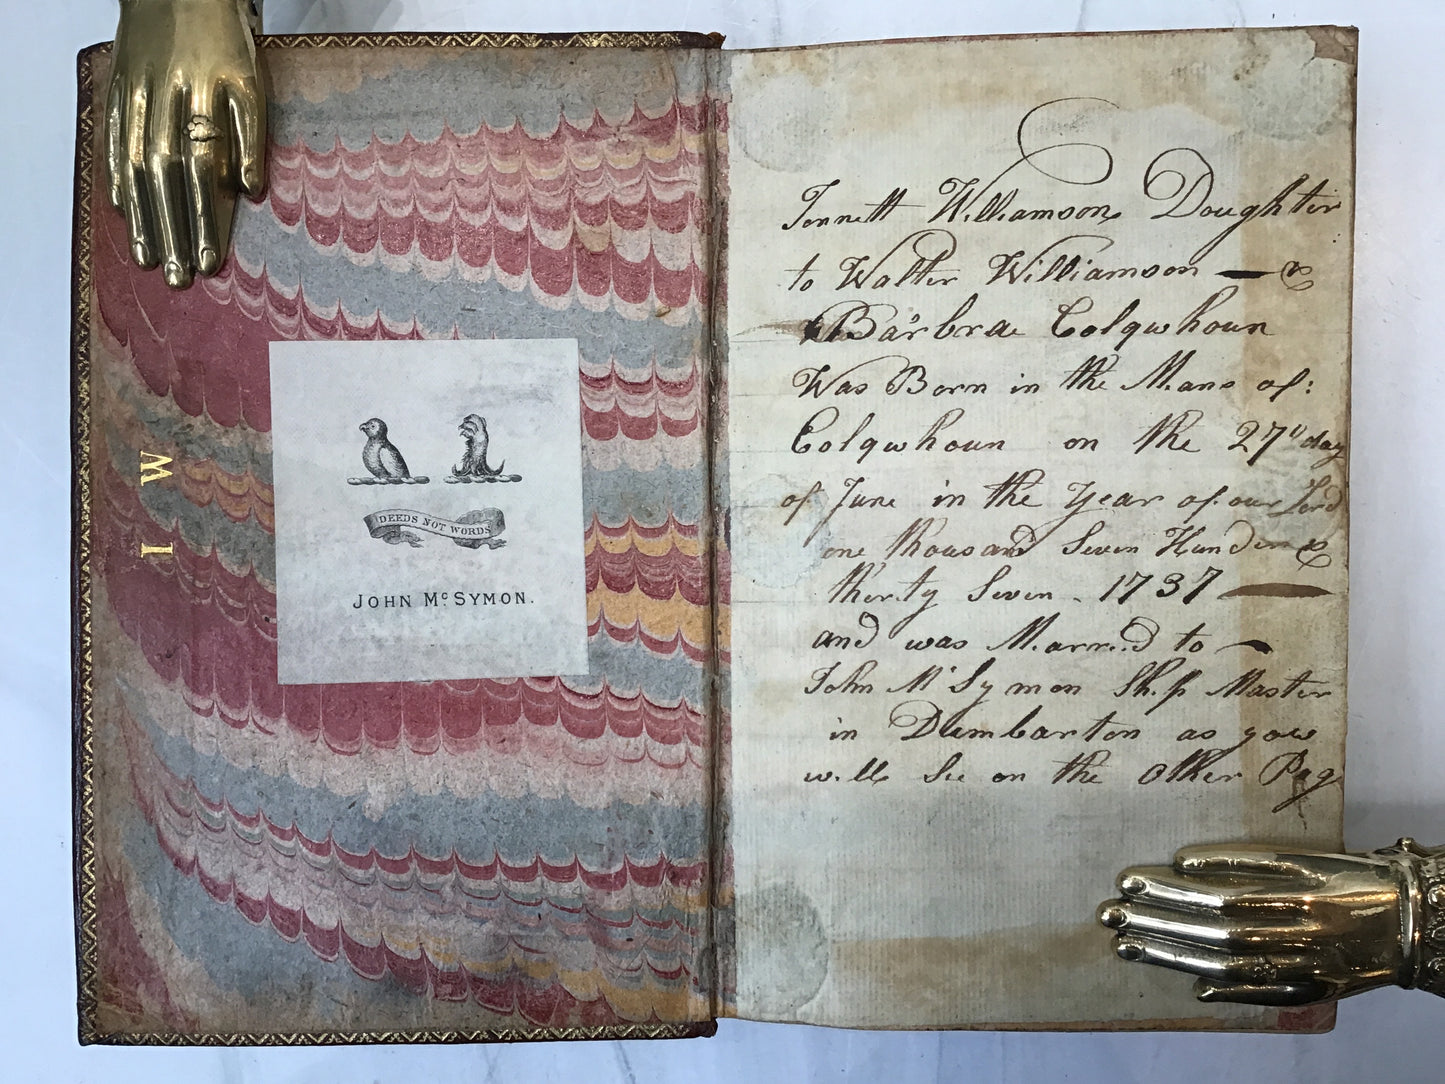 I W
DEEDS NOT WORDS
JOHN Mc SYMON.
Jonnett Williamson Doughter
to Walter Williamson — &
Barbra Colqwhoun
Was Born in the Mans of:
Colqwhoun on the 27" day
of June in the Year of our Lord
one thousand Seven Hunder &
therty Seven . 1737 —
and was Marred to —
John Mc Symon Ship Master
in Dumbarton as yow
will See on the Other Pag